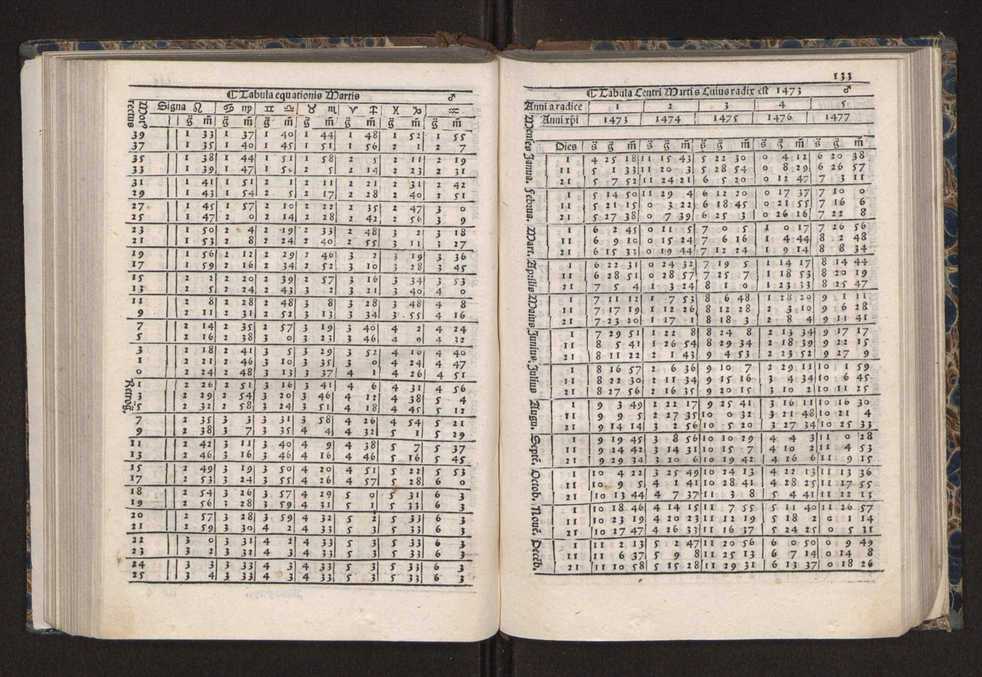 ☾ Tabula equationis Martis ♂
Signa ♌ ♋ ♍ ♊ ♎ ♉ ♏ ♈ ♐ ♓ ♑ ♒
rectus
g̃ m̃ g̃ m̃ g̃ m̃ g̃ m̃ g̃ m̃ g̃ m̃ g̃ m̃
39 1 33 1 37 1 40 1 44 1 48 1 52 1 55
37 1 35 1 40 1 45 1 51 1 56 2 1 2 7
35 1 38 1 44 1 51 1 58 2 5 2 11 2 19
33 1 39 1 47 1 2 5 2 14 2 23 2 31
31 1 41 1 51 2 1 2 11 2 21 2 31 2 42
29 1 43 1 54 2 5 2 17 2 28 2 40 2 51
27 1 45 1 57 2 10 2 22 2 35 2 47 3 0
25 1 47 2 0 2 14 2 28 2 42 2 56 3 9
23 1 50 2 4 2 19 2 33 2 48 3 2 3 18
21 1 53 2 8 2 24 2 40 2 55 3 11 3 27
19 1 56 2 12 2 29 2 46 3 2 3 19 3 36
17 1 59 2 16 2 34 2 52 3 10 3 28 3 45
15 2 2 2 20 2 39 2 57 3 16 3 34 3 53
13 2 5 2 24 2 43 3 2 3 21 3 40 4 0
11 2 8 2 28 2 48 3 8 3 28 3 48 4 8
9 2 11 2 31 2 52 3 13 3 34 3 55 4 16
7 2 14 2 35 2 57 3 19 3 40 4 2 4 24
5 2 16 2 38 3 0 3 23 3 46 4 9 4 32
3 2 18 2 41 3 5 3 29 3 52 4 16 4 40
1 2 21 2 46 3 10 3 35 3 0 4 24 4 47
0 2 24 2 48 3 13 3 37 4 1 4 26 4 51
1 2 26 2 51 3 16 3 41 4 6 4 31 4 56
3 2 29 2 54 3 20 3 46 4 12 4 38 5 4
5 2 32 2 58 3 24 3 51 4 18 4 45 5 12
7 2 35 3 3 3 31 3 58 4 26 4 54 5 21
9 2 38 3 7 3 35 4 4 4 32 5 1 5 29
11 2 42 3 11 3 40 4 9 4 38 5 7 5 37
13 2 46 3 16 3 46 4 16 4 46 5 16 5 45
15 2 49 3 19 3 50 4 20 4 51 5 22 5 53
17 2 53 3 24 3 55 4 26 4 57 5 28 6 0
18 2 54 3 26 3 57 4 29 5 0 5 31 6 3
19 2 56 3 28 3 59 4 31 5 1 5 33 6 3
20 2 57 3 28 3 59 4 32 5 2 5 33 6 3
21 2 59 3 30 4 2 4 33 5 3 5 33 6 3
22 3 0 3 31 4 2 4 33 5 3 5 33 6 3
23 3 2 3 31 4 3 4 33 5 3 5 33 6 3
24 3 3 3 33 4 3 4 33 5 3 5 33 6 3
25 3 4 3 33 4 3 4 33 5 3 5 33 6 3
133
☾ Tabula Centri Martis Cuius radix est 1473 ♂
Anni a radice 1 2 3 4 5
Anni xp̃i 1473 1474 1475 1476 1477
Menses
Dies s̃ g̃ m̃ s̃ g̃ m̃ s̃ g̃ m̃ s̃ g̃ m̃ s̃ g̃ m̃
Janua.
1 4 25 18 11 15 43 5 22 30 0 4 12 6 20 38
11 5 1 33 11 20 3 5 28 54 0 8 29 6 26 57
21 5 7 52 11 24 21 6 5 20 0 12 47 7 3 11
Februa.
1 5 14 50 11 29 4 6 12 20 0 17 37 7 10 0
11 5 21 15 0 3 22 6 18 45 0 21 55 7 16 6
21 5 27 38 0 7 39 6 25 3 0 26 16 7 22 8
Mart.
1 6 2 45 0 11 5 7 0 5 1 0 17 7 26 56
11 6 9 10 0 15 24 7 6 16 1 4 44 8 2 48
21 6 15 33 0 19 44 7 12 24 1 9 14 8 8 34
Aprilis
1 6 22 31 0 24 32 7 19 5 1 14 17 8 14 44
11 6 28 51 0 28 57 7 25 7 1 18 53 8 20 19
21 7 5 4 1 3 24 8 1 0 1 23 33 8 25 47
Maius
1 7 11 12 1 7 53 8 6 48 1 28 20 9 1 11
11 7 17 19 1 12 26 8 12 28 2 3 10 9 6 28
21 7 23 20 1 17 1 8 18 3 2 8 4 9 11 41
Junius
1 7 29 51 1 22 8 8 24 8 2 13 34 9 17 17
11 8 5 41 1 26 54 8 29 34 2 18 39 9 22 15
21 8 11 22 2 1 43 9 4 53 2 23 52 9 27 9
Julius
1 8 16 57 2 6 36 9 10 7 2 29 11 10 1 59
11 8 22 30 2 11 34 9 15 16 3 4 34 10 6 45
21 8 27 56 2 16 35 9 20 15 3 10 2 10 11 25
Augu.
1 9 3 49 2 22 17 9 25 41 3 16 11 10 16 30
11 9 9 5 2 27 35 10 0 32 3 21 48 10 21 4
21 9 14 14 3 2 56 10 5 20 3 27 34 10 25 33
Septẽ.
1 9 19 45 3 8 56 10 10 29 4 4 3 11 0 28
11 9 24 42 3 14 31 10 15 7 4 10 2 11 4 53
21 9 29 34 3 20 6 10 19 42 4 16 6 11 9 15
Octob.
1 10 4 22 3 25 49 10 24 13 4 22 13 11 13 36
11 10 9 5 4 1 41 10 28 41 4 28 25 11 17 55
21 10 13 44 4 7 37 11 3 8 5 4 41 11 22 13
Nouẽ.
1 10 18 46 4 14 15 11 7 55 5 11 40 11 26 57
11 10 23 19 4 20 23 11 12 19 5 18 2 0 1 14
21 10 27 47 4 26 33 11 16 37 5 24 25 0 5 31
Decẽb.
1 11 2 13 5 2 47 11 20 56 6 0 50 0 9 49
11 11 6 37 5 9 8 11 25 13 6 7 14 0 14 8
21 11 10 58 5 15 28 11 29 31 6 13 37 0 18 26